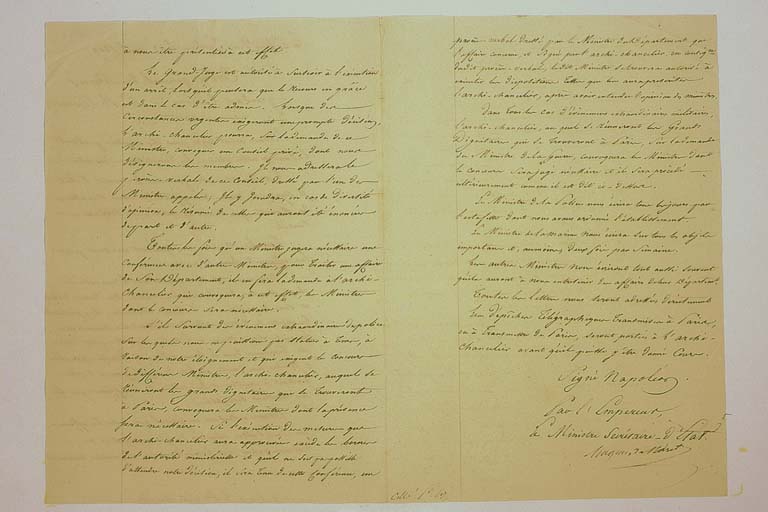 à nous être présentées à cet effet.
Le Grand Juge est autorisé à surseoir à l'exécution
d'un arrêt, lorsqu'il pensera que le recours en grâce
est dans le cas d'être admis. Lorsque des
circonstances urgentes exigeront une prompte décision,
l'archi-chancelier pourra, sur la demande de ce
Ministre, convoquer un Conseil privé, dont nous
désignerons les membres. Il nous adressera le
procès-verbal de ce Conseil, dressé par l'un des
Ministres appelés; Il y joindra, en cas de diversité
d'opinions, le résumé de celles qui auront été énoncées
de part et d'autre.
Toutes les fois qu'un Ministre jugera nécessaire une
conférence avec d'autres Ministres, pour traiter un affaire
de son Département, il en fera la demande à l'archi-
chancelier qui convoquera, à cet effet, les Ministres
dont le concours sera nécessaire.
S'il survient des événemens extraordinaires de police
sur lesquels nous ne puissions pas statuer à tems, à
raison de notre éloignement, et qui exigent le concours
de différens Ministres, l'archi-chancelier, auquel se
réuniront les grands dignitaires qui se trouveront
à Paris, convoquera les Ministres dont la présence
sera nécessaire. Si l'exécution des mesures que
l'archi-chancelier aura approuvées excède les bornes
de l'autorité ministérielle et qu'il ne soit pas possible
d'attendre notre décision, il sera tenu de cette conférence, un
procès-verbal dressé par le Ministre du Département que
l'affaire concerne et signé par l'archi-chancelier, en conséq.ce
dudit procès-verbal, le dit Ministre se trouvera autorisé à
exécuter les dispositions telles que les aura prescrites
l'archi-chancelier, après avoir entendu l'opinion des ministres.
Dans tous les cas d'événemens extraordinaires militaires,
l'archi-chancelier, auquel se réuniront les Grands
Dignitaires qui se trouveront à Paris, sur la demande
du Ministre de la guerre, convoquera les Ministres dont
le concours sera jugé nécessaire et il sera procédé
ultérieurement comme il est dit ci-dessus.
Le Ministre de la Police nous écrira tous les jours par
l'estafette dont nous avons ordonné l'établissement.
Le Ministre de la marine nous écrira sur tous les objets
importans et, au moins, deux fois par semaine.
Les autres Ministres nous écriront tout aussi souvent
qu'ils auront à nous entretenir des affaires de leurs Départem.s
Toutes les lettres nous seront adressées directement
Les dépêches Télégraphiques transmises à Paris,
ou à transmettre de Paris, seront portées à l'archi-
chancelier avant qu'il puisse y être donné cours.
Signé Napoléon.
Par l'Empereur,
le Ministre Secrétaire d'Etat